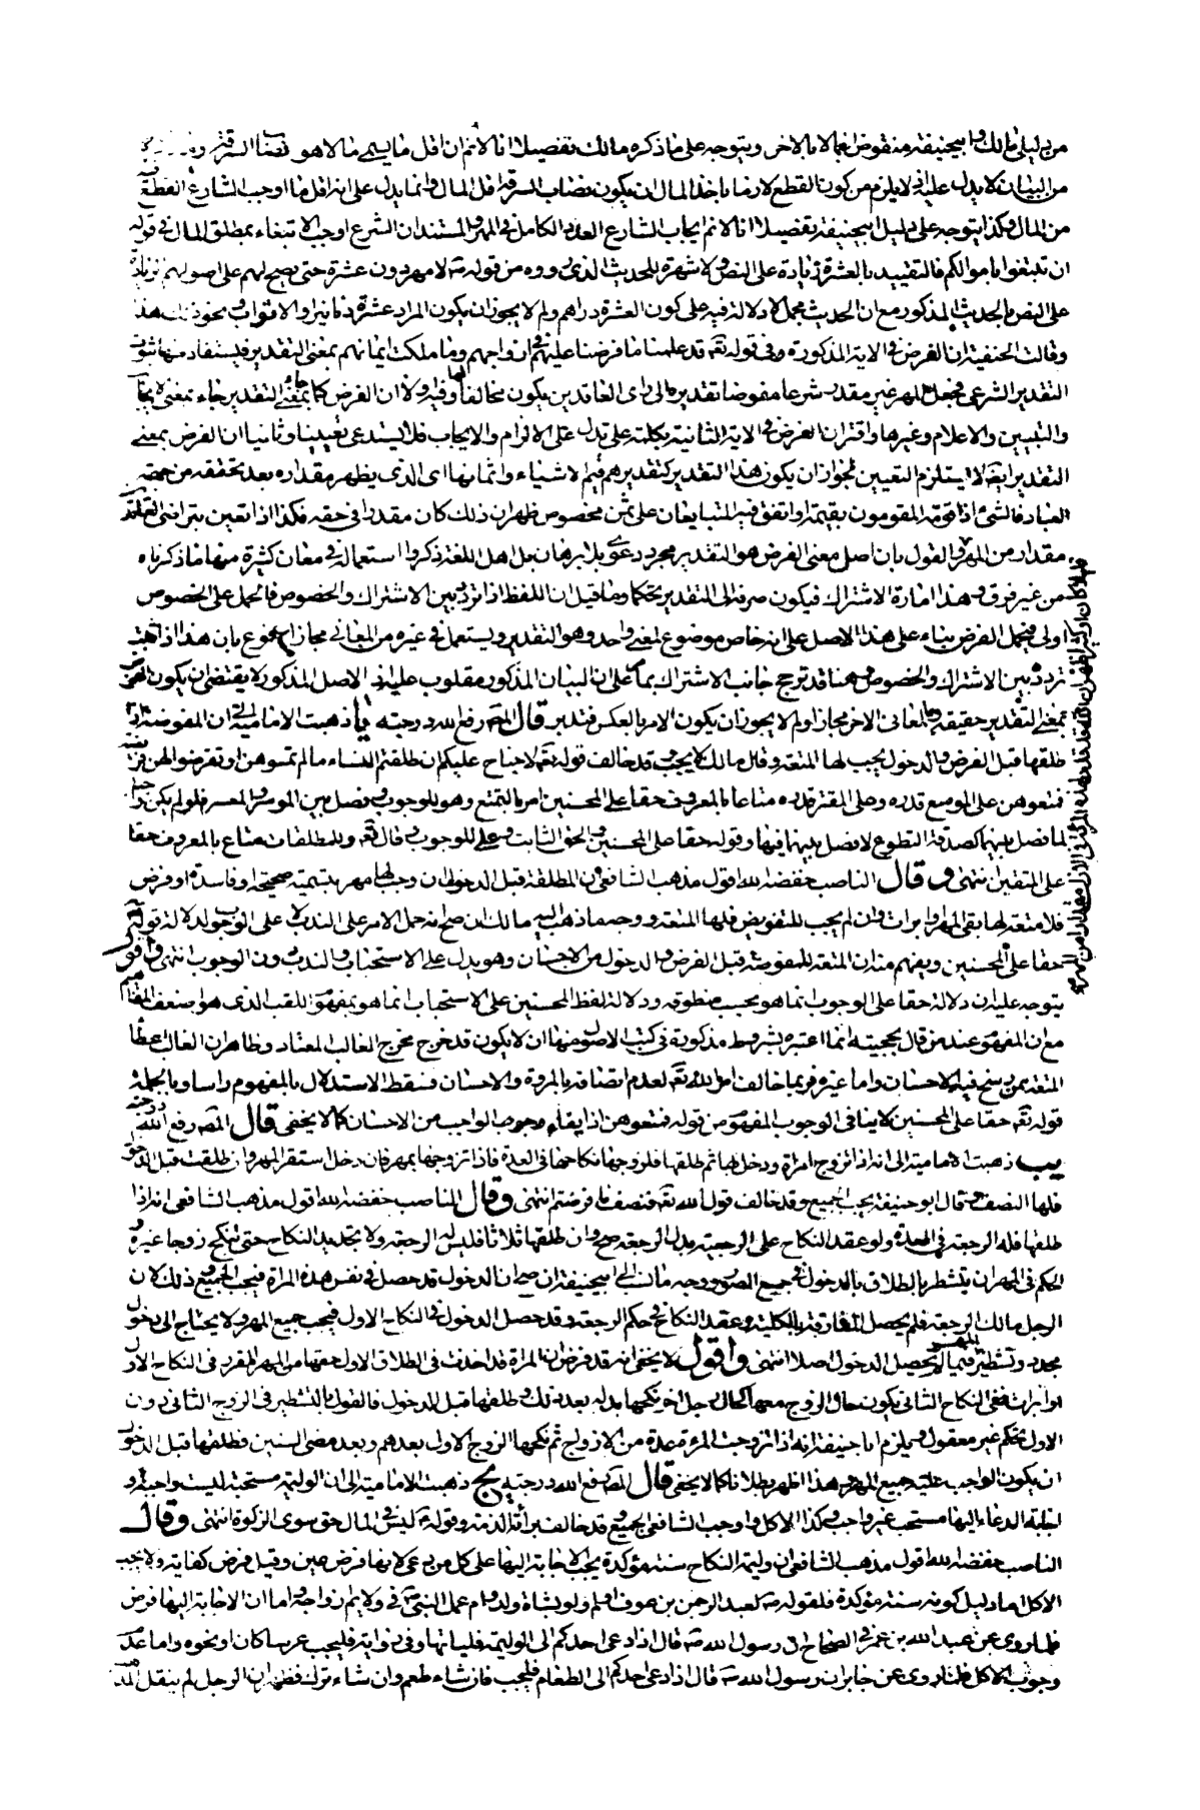 من دليلي مالك وابيحنيفة منقوض اجمالا بالاخر ويتوجه على ما ذكره مالك تفصيلا انا لا نم ان اقل ما يسمى مالا هو نصاب السرقة
من البيان لا يدل عليه اذ لا يلزم من كون القطع لازما باخذ المال ان يكون نصاب السرقة اقل المال وانما يدل على انه اقل ما اوجب الشارع القطع
من المال وكذا يتوجه على دليل ابيحنيفة تفصيلا انا لا نم ايجاب الشارع العدد الكامل في المهر والمستند ان الشرع اوجب الابتغاء بمطلق المال في قوله
ان تبتغوا باموالكم فالتقييد بالعشرة زيادة على النص ولا شهرة للحديث الذي رووه من قوله ص لا مهر دون عشرة حتى يصح لهم على اصولهم الزيادة
على النص بالحديث المذكور مع ان الحديث مجمل لا دلالة فيه على كون العشرة دراهم ولم لا يجوز ان يكون المراد عشرة دنانير او الاثواب نحو ذلك هذا
وقالت الحنفية ان الفرض في الاية المذكورة وفي قوله تعه قد علمنا ما فرضنا عليهم في ازواجهم وما ملكت ايمانهم بمعنى التقدير فيستفاد منها ثبوت
التقدير الشرعي فجعل المهر غير مقدر شرعا مفوضا تقديره الى راى العاقدين يكون مخالفا لها وفيه اولا ان الفرض كما جاء بمعنى التقدير جاء بمعنى الايجاب
والتبيين والاعلام وغيرها واقتران الفرض في الاية الثانية بكلمة على تدل على الالزام والايجاب فلا يستدعى تعيينا وثانيا ان الفرض بمعنى
التقدير ايضا لا يستلزم التعيين لجواز ان يكون هذا التقدير كتقديرهم قيم الاشياء واثمانها اى الذى يظهر مقداره بعد تحققه من جهة
العباد فالشئ اذا قومه المقومون بقيمة او اتفق فيه المتبايعان على ثمن مخصوص ظهر ان ذلك كان مقدرا في حقه فكذا اذا تعين بتراضى العاقدين
مقدار من المهر والقول بان اصل معنى الفرض هو التقدير مجرد دعوى بلا برهان بل اهل اللغة ذكروا استعماله في معان كثيرة منها ما ذكرناه
من غير فرق وهذا امارة الاشتراك فيكون صرفه الى التقدير تحكما وما قيل ان اللفظ اذا تردد بين الاشتراك والخصوص فالحمل على الخصوص
اولى فيحمل الفرض بناء على هذا الاصل على انه خاص موضوع لمعنى واحد وهو التقدير ويستعمل في غيره من المعاني مجازا مدفوع بان هذا اذا تحقق
تردده بين الاشتراك والخصوص وههنا قد ترجح جانب الاشتراك بما مر على ان البيان المذكور مقلوب عليه اذ الاصل المذكور لا يقتضى ان يكون الفرض
بمعنى التقدير حقيقة وباقي المعاني الاخر مجازا ولم لا يجوز ان يكون الامر بالعكس فتدبر قال المص رفع الله درجته يا ذهبت الامامية الى ان المفوضة اذا
طلقها قبل الفرض والدخول يجب لها المتعة وقال مالك لا يجب وقد خالف قوله تعه لا جناح عليكم ان طلقتم النساء ما لم تمسوهن او تفرضوا لهن فريضة
فمتعوهن على الموسع قدره وعلى المقتر قدره متاعا بالمعروف حقا على المحسنين امر بالتمتع وهو للوجوب وفصل بين الموسر والمعسر فلو لم يكن واجبا
لما فصل بينهما كصدقة التطوع لا فصل بينهما فيها وقوله حقا على المحسنين والحق الثابت وعلى للوجوب وقال تعه وللمطلقات متاع بالمعروف حقا
على المتقين انتهى وقال الناصب خفضه الله اقول مذهب الشافعي ان المطلقة قبل الدخول ان وجب لها مهر بتسمية صحيحة او فاسدة او فرض
فلا متعة لها بقى المهر او ابرات وان لم يجب للتفويض فلها المتعة ووجه ما ذهب اليه مالك ان صح منه حمل الامر على الندب لا على الوجوب لدلالة قوله تعه
حقا على المحسنين ويفهم منه ان المتعة للمفوضة قبل الفرض والدخول من الاحسان وهو يدل على الاستحباب والندب دون الوجوب انتهى واقول
يتوجه عليه ان دلالة حقا على الوجوب انما هو بحسب منطوقه ودلالة لفظ المحسنين على الاستحباب انما هو بمفهوم اللقب الذى هو اضعف المفاهيم
مع ان المفهوم عند من قال بحجيته انما اعتبره بشروط مذكورة في كتب الاصول منها ان لا يكون قد خرج مخرج الغالب المعتاد وظاهر ان الغالب اعطاء
المتعة ممن رسخ فيه الاحسان واما غيره فربما خالف امر الله تعه لعدم اتصافه بالمروة والاحسان فسقط الاستدلال بالمفهوم راسا وبالجملة
قوله تعه حقا على المحسنين لا ينافى الوجوب المفهوم من قوله فمتعوهن اذ ايفاء وجوه الواجب من الاحسان كما لا يخفى قال المص رفع الله درجته
يب ذهبت الامامية الى انه اذا تزوج امراة ودخل بها ثم طلقها فله زوجها نكاحها في العدة فاذا تزوجها بمهر فان دخل استقر المهر وان طلقت قبل الدخول
فلها النصف وقال ابو حنيفة يجب الجميع وقد خالف قول الله تعه فنصف ما فرضتم انتهى وقال الناصب خفضه الله اقول مذهب الشافعي انه اذا
طلقها فله الرجعة في العدة ولو عقد النكاح على الرجعية بدل الرجعة صح وان طلقها ثلاثا فليس له الرجعة ولا تجديد النكاح حتى تنكح زوجا غيره
والحكم في المهر ان يتشطر بالطلاق بالدخول في جميع الصور ووجه ما نسب الى ابيحنيفة ان صح ان الدخول قد حصل في نفس هذه المراة فيجب الجميع وذلك لان
الرجل مالك الرجعة فلم يحصل المفارقة بالكلية وعقد النكاح في حكم الرجعة وقد حصل الدخول في النكاح الاول فيجب جميع المهر ولا يحتاج الى دخول
مجدد وتشطير المهر فيما لم يحصل الدخول اصلا انتهى واقول لا يخفى انه قد فرض ان المراة قد اخذت في الطلاق الاول حقها من المهر المقرر في النكاح الاول
او ابرات ففى النكاح الثانى يكون حال الزوج معها كحال رجل اخر نكحها بدله بعد ذلك وطلقها قبل الدخول فالقول بالتشطير في الزوج الثانى دون
الاول تحكم غير معقول ويلزم ابا حنيفة انه اذا تزوجت المرءة عدة من الازواج ثم نكحها الزوج الاول بعدهم وبعد مضى السنين فطلقها قبل الدخول
ان يكون الواجب عليه جميع المهر وهذا اظهر بطلانا كما لا يخفى قال المص رفع الله درجته يج ذهبت الامامية الى ان الوليمة مستحبة ليست واجبة و
اجابة الدعاء اليها مستحب غير واجب وكذا الاكل واوجب الشافعي الجميع وقد خالف براءة الذمة وقوله ص ليس في المال حق سوى الزكوة انتهى وقال
الناصب خفضه الله اقول مذهب الشافعي ان وليمة النكاح سنة مؤكدة يجب الاجابة اليها على كل من دعى لانها فرض عين وقيل فرض كفاية ولا يجب
الاكل اما دليل كونه سنة مؤكدة فلقوله ص لعبد الرحمن بن عوف اولم ولو بشاة ولدوام عمل النبي ص في ولايم زواجه واما ان الاجابة اليها فرض
فلما روى عن عبد الله بن عمر في الصحاح ان رسول الله ص قال اذا دعى احدكم الى الوليمة فلياتها وفي رواية فليجب عرسا كان او نحوه واما عدم
وجوب الاكل فلما روى عن جابر ان رسول الله ص قال اذا دعى احدكم الى الطعام فليجب فان شاء طعم وان شاء ترك فظهر ان الرجل لم ينقل المذهب